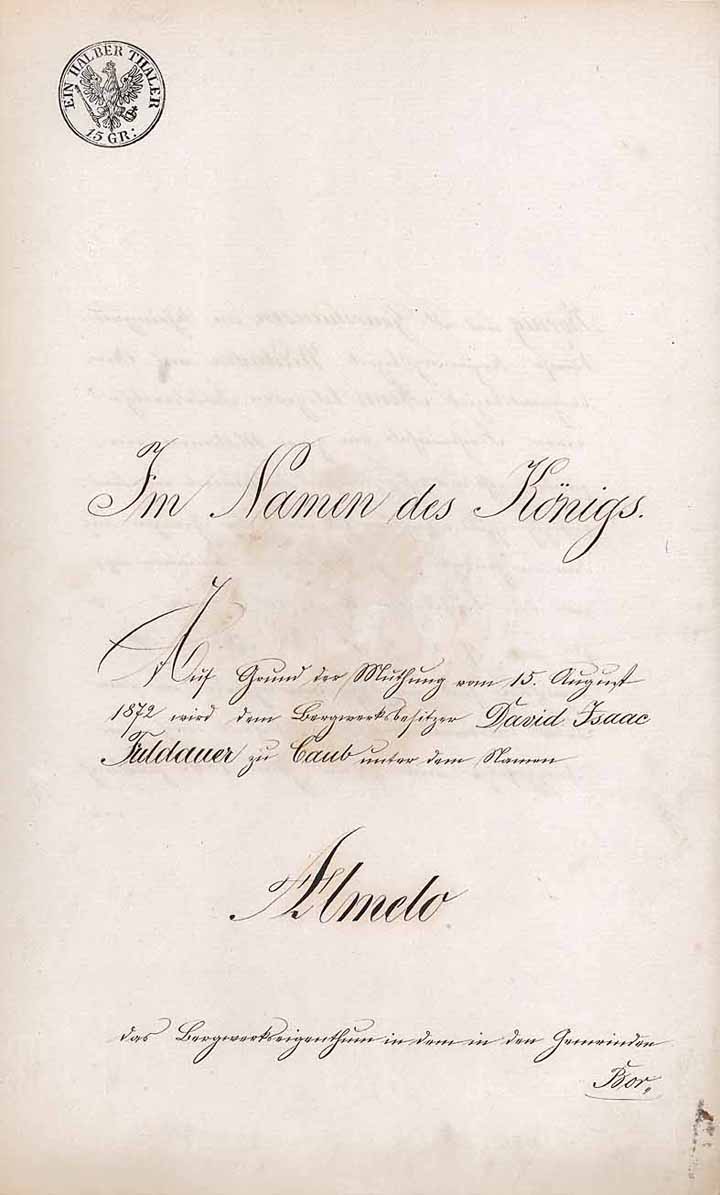 EIN HALBER THALER
15 GR:
Im Namen des Königs.
Auf Grund der Muthung vom 15. August
1872 wird dem Bergwerksbesitzer David Isaac
Fuldauer zu Caub unter dem Namen
Almelo
das Bergwerkseigenthum in dem in den Gemeinden
Bor„